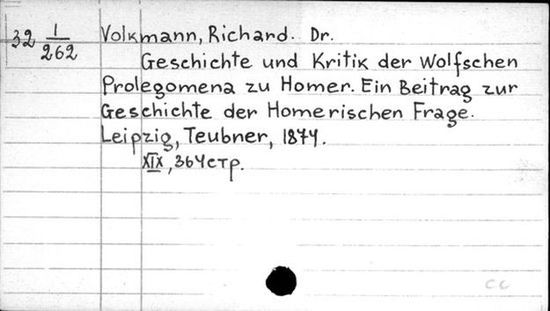 32 1/262
Volkmann, Richard. Dr.
Geschichte und Kritik der Wolfschen
Prolegomena zu Homer. Ein Beitrag zur
Geschichte der Homerischen Frage.
Leipzig, Teubner, 1874.
XIX, 364 стр.
CC